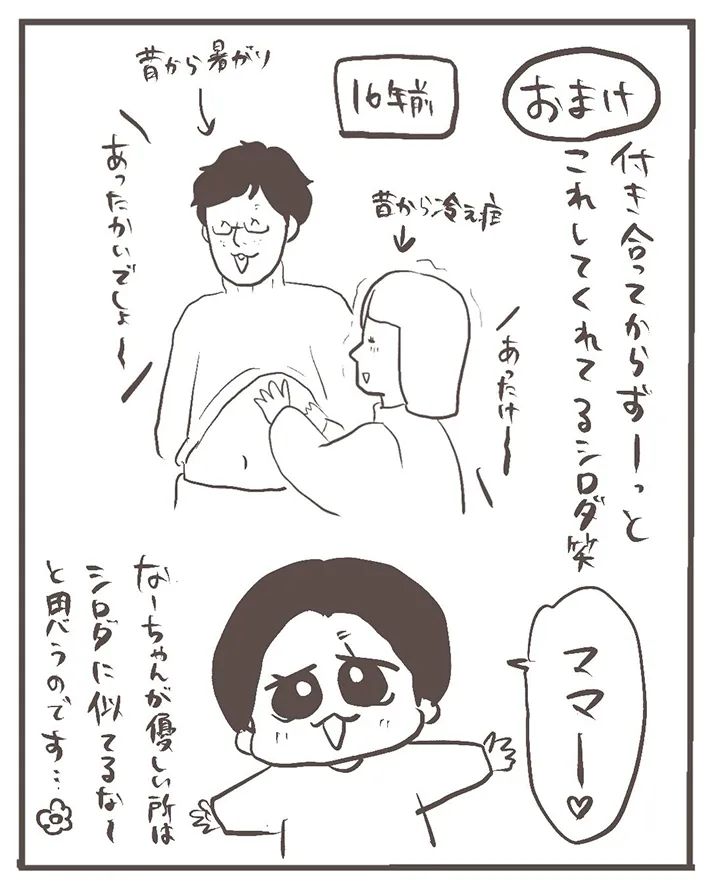 おまけ
付き合ってからずーっと
これしてくれてるシロダ笑
16年前
昔から冷え症
あったけ〜
昔から暑がり
あったかいでしょ〜
ママー♡
なーちゃんが優しい所は
シロダに似てるなー
と思うのです…